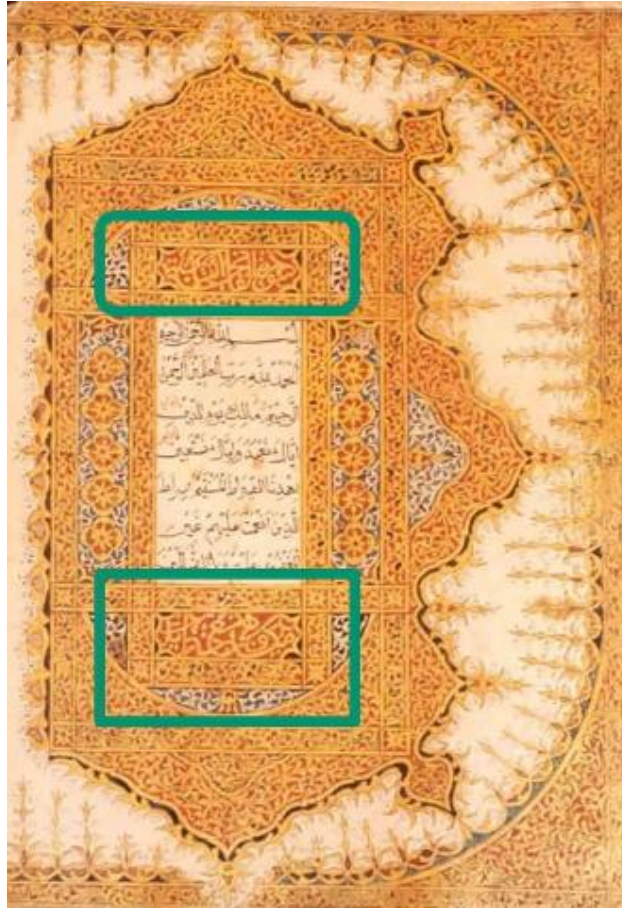 بسم الله الرحمن الرحيم
الحمد لله رب العلمين الرحمن
الرحيم مالك يوم الدين
اياك نعبد واياك نستعين
اهدنا الصراط المستقيم صراط
الذين انعمت عليهم غير
المغضوب عليهم ولا الضالين